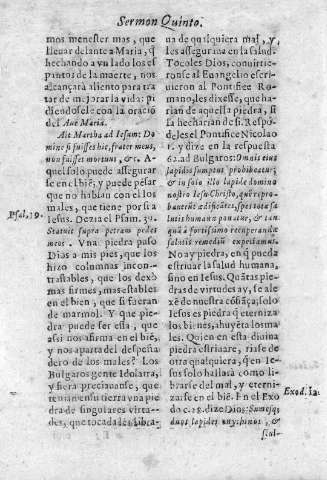 Sermon Quinto.
mos menester mas, que
lleuar delante a Maria, q̃
hechando a vn lado los es
pantos de la muerte, nos
alcançarà aliento para tra
tar de mejorar la vida: pi
diendosele con la oracion
del Aue Maria.
Ait Martha ad Iesum: Do
mine si fuisses hic, frater meus,
non fuisset mortuus, &c. A
quel solo puede assegurar
se en el biẽ; y puede pẽsar
que no habian con el los
males, que tiene por si a
Iesus. Dezia el Psam. 39.
Psal, 39.
Statuit supra petram pedes
meos. Vna piedra puso
Dios a mis pies, que los
hizo columnas incon-
trastables, que los dexò
mas firmes, mas estables
en el bien, que si fueran
de marmol. Y que pie
dra puede ser esta, que
assi nos afirma en el biẽ,
y nos aparta del despeña
dero de los males? Los
Bulgaros gente Idolatra,
y fiera preciauanse, que
tenian en su tierra vna pie
dra de singulares virtu-
des, que tocada les libra-
ua de qualquiera mal, y
les asseguraua en la salud.
Tocoles Dios, conuirtie-
ronse al Euangelio escri-
uieron al Pontifice Ro-
mano, les dixesse, que ha-
rian de aquella piedra, si
la hecharian de si. Respõ-
deles el Pontifice Nicolao
1. y dize en la respuesta
62. ad Bulgaros: Omnis eius
lapidos sumptus prohibeatur;
& in solo illo lapide domino
nostro Iesu Christo, que repro-
bauerũt ædificãtes, spes tota sa
lutis humanæ ponatur, & tan
quã à fortissimo recuperandæ
salutis remedii expectamus.
No ay piedra, en q̃ pueda
estriuar la salud humana,
sino en Iesus. Quãtas pie
dras de virtudes ay, se ale
xẽ de nuestra cõfiãça; solo
Iesus es piedra q̃ eterniza
los bienes, ahuyẽta los ma
les. Quien en esta diuina
piedra estriuare, riase de
otra qualquiera, q̃ en Ie-
sus solo hallarà como li
brarse del mal, y eterni-
zarse en el biẽ. En el Exo
Exod. 12.
do c. 28. dize Dios: Sumesq́;
duos lapides onychinos, &
scul-